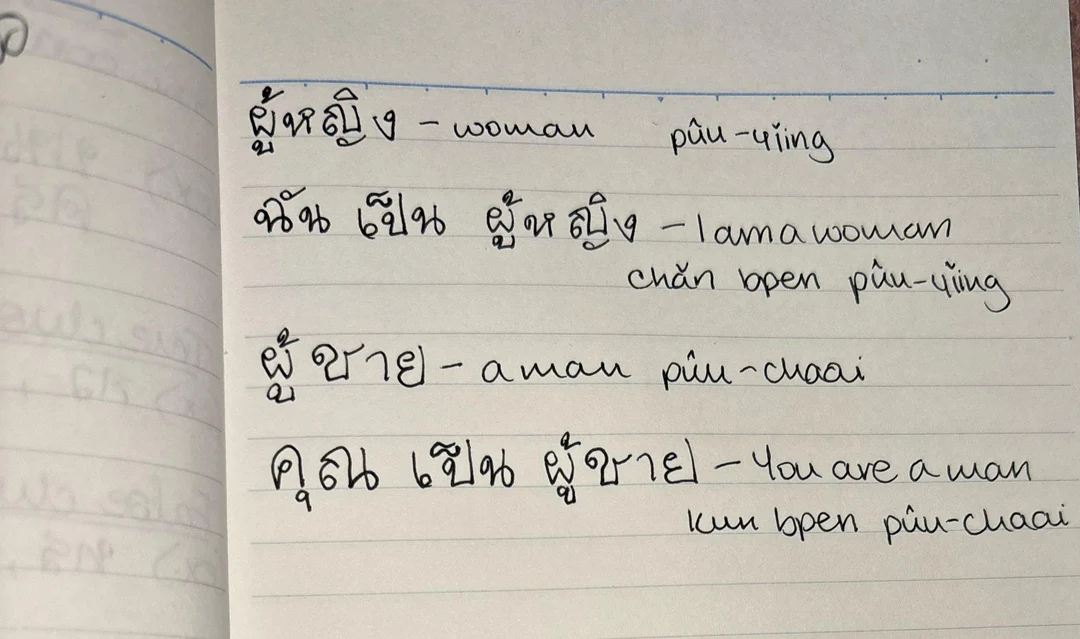 ผู้หญิง - woman pûu-yǐing
ฉัน เป็น ผู้หญิง - I am a woman
chǎn bpen pûu-yǐing
ผู้ชาย - a man pûu-chaai
คุณ เป็น ผู้ชาย - You are a man
kun bpen pûu-chaai